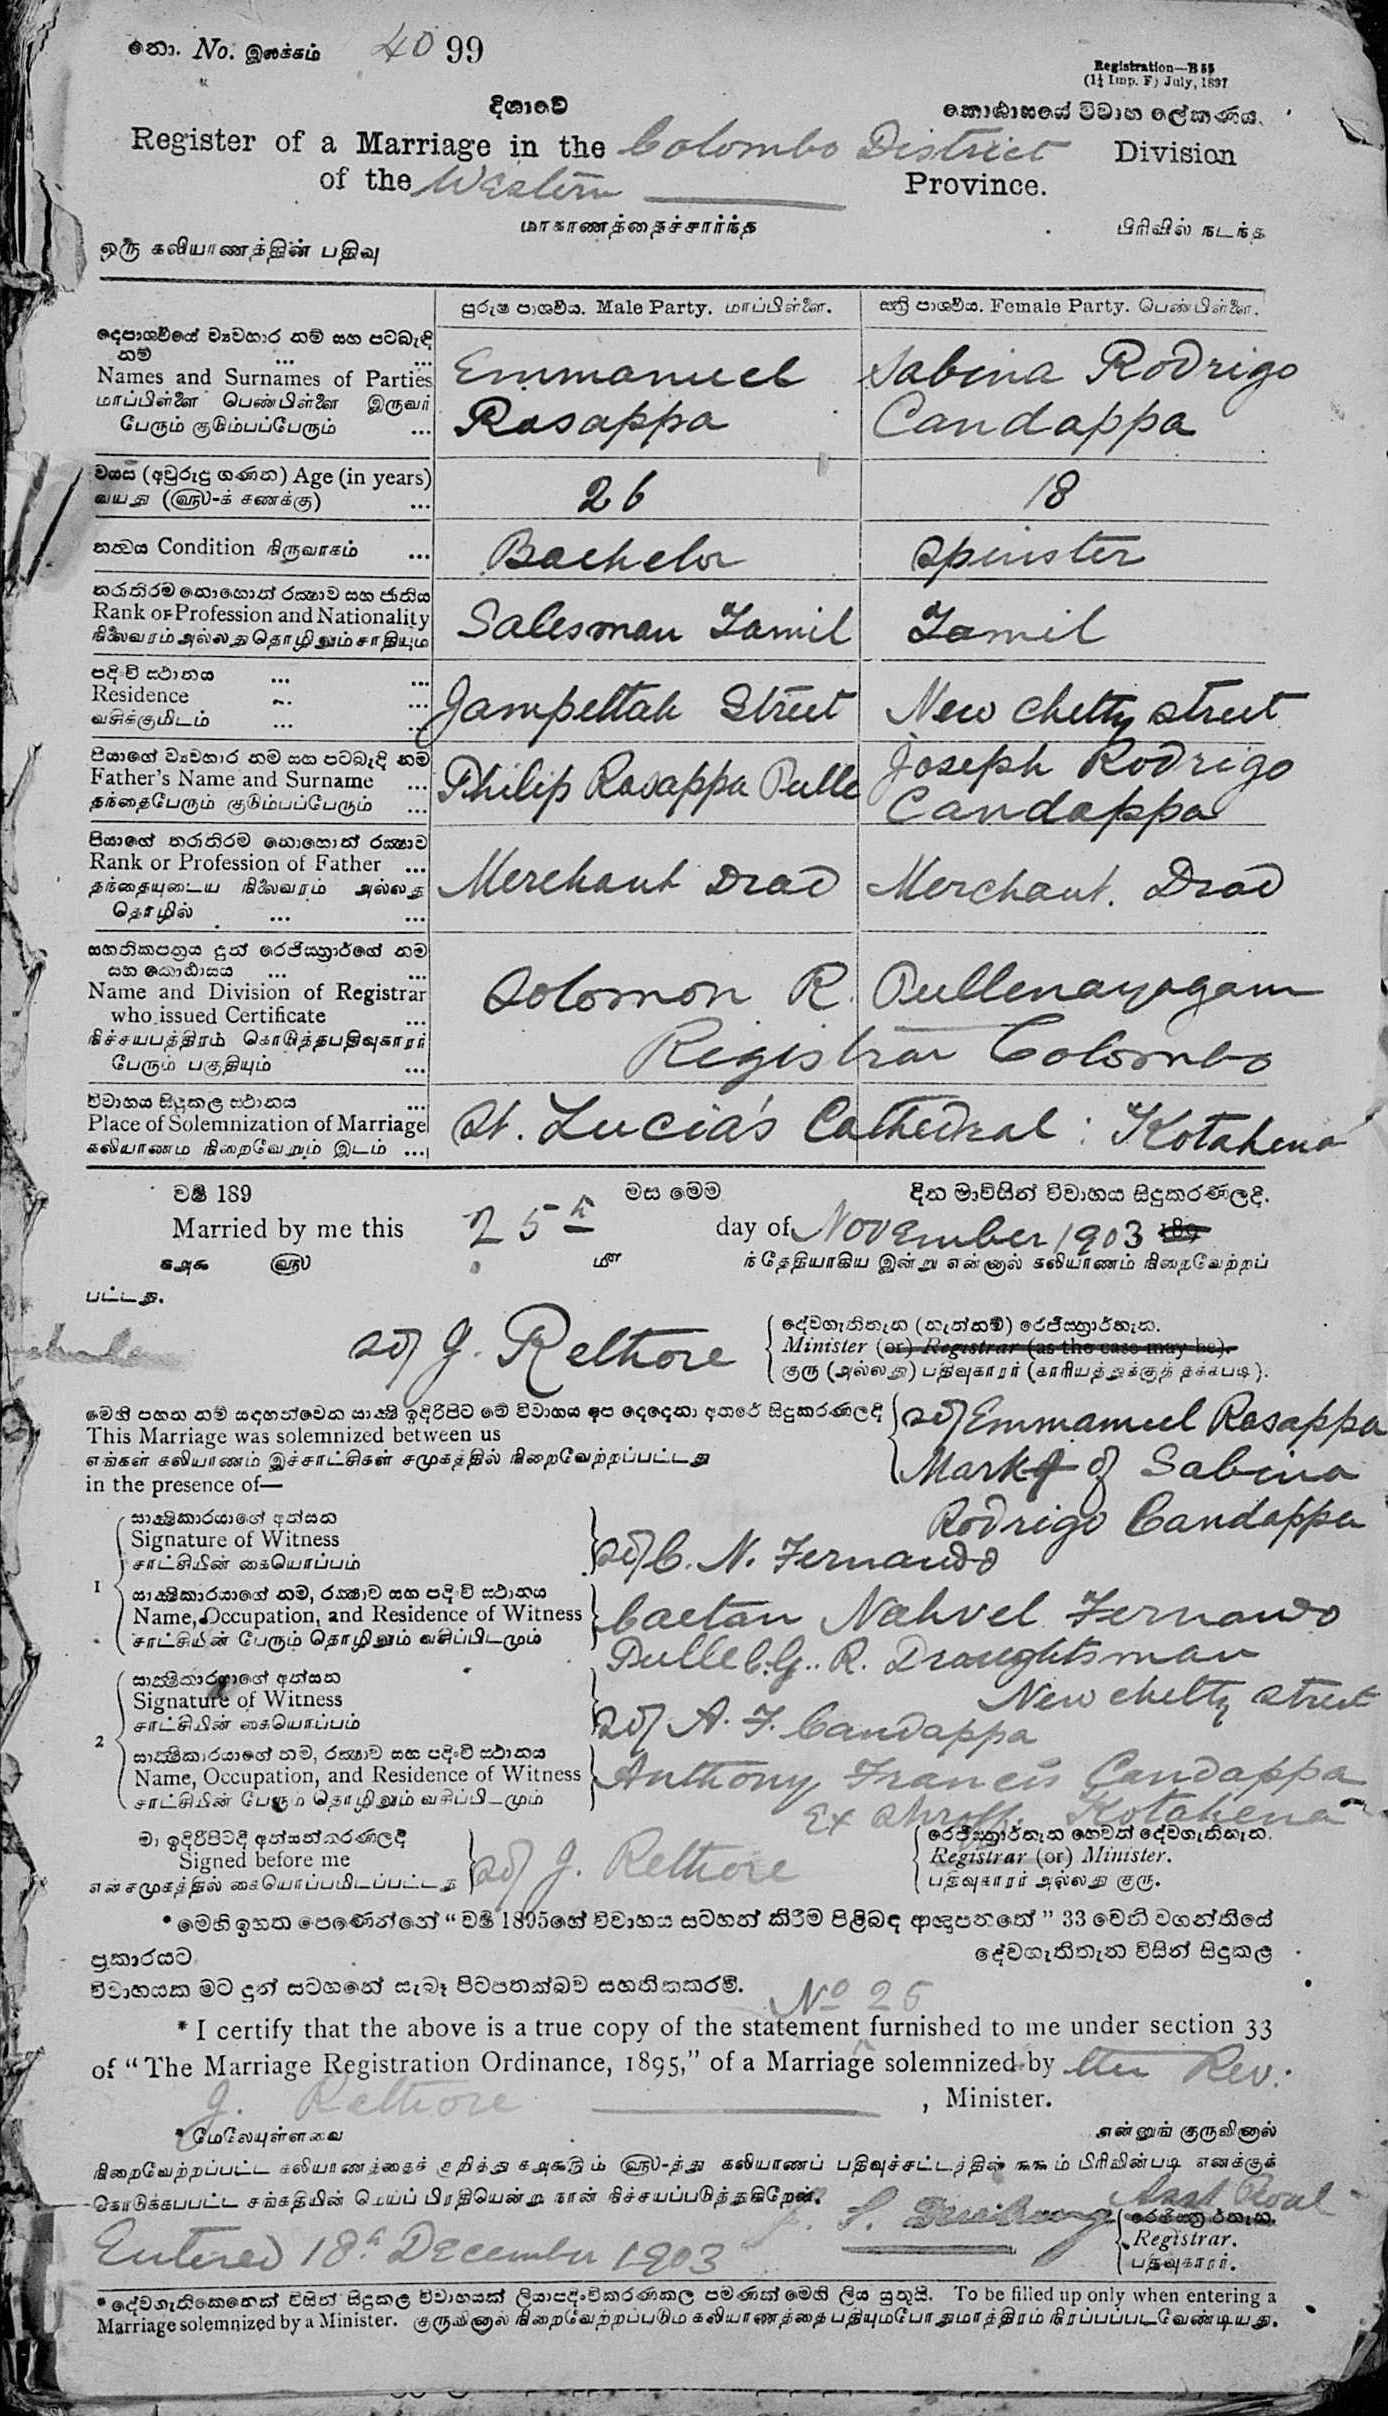 නො. No. இலக்கம் 4099
Registration—B 55
(1½ Imp. F) July, 1897
දිශාවේ කොඨාසයේ විවාහ ලේකණය.
Register of a Marriage in the Colombo District Division
of the Western Province.
மாகாணத்தைச்சார்ந்த பிரிவில் நடந்த
ஒரு கலியாணத்தின் பதிவு
පුරුෂ පාශවීය. Male Party. மாப்பிள்ளை. ස්ත්‍රි පාශවීය. Female Party. பெண்பிள்ளை.
දෙපාශවීයේ ව්‍යවහාර නම් සහ පටබැඳි
නම් ... ...
Names and Surnames of Parties Emmanuel Sabina Rodrigo
மாப்பிள்ளை பெண்பிள்ளை இருவர் Rasappa Candappa
பேரும் குடும்பப்பேரும் ...
වයස (අවුරුදු ගණන) Age (in years) 26 18
வயது (௵-க் கணக்கு) ...
තත්වය Condition நிருவாகம் ... Bachelor Spinster
තරාතිරම නොහොත් රක්‍ෂාව සහ ජාතිය
Rank or Profession and Nationality Salesman Tamil Tamil
நிலைவரம் அல்லது தொழிலும் சாதியும்
පදිංචි ස්ථානය ... ...
Residence ... ... Jampettah Street New Chetty Street
வசிக்குமிடம் ... ...
පියාගේ ව්‍යවහාර නම සහ පටබැඳි නම Joseph Rodrigo
Father's Name and Surname ... Philip Rasappa Pulle Candappa
தந்தைபேரும் குடும்பப்பேரும் ...
පියාගේ තරාතිරම නොහොත් රක්‍ෂාව
Rank or Profession of Father ... Merchant Dead Merchant. Dead
தந்தையுடைய நிலைவரம் அல்லது
தொழில் ... ...
සහතිකපත්‍රය දුන් රෙජිස්ත්‍රාර්ගේ නම
සහ කොඨාසය ... ...
Name and Division of Registrar Solomon R. Pullenayagam
who issued Certificate ... Registrar Colombo
நிச்சயபத்திரம் கொடுத்தபதிவுகாரர்
பேரும் பகுதியும் ...
විවාහය සිදුකල ස්ථානය ...
Place of Solemnization of Marriage St. Lucia's Cathedral : Kotahena
கலியாணம் நிறைவேறும் இடம் ...
වර්‍ෂ 189 මස මෙම දින මාවිසින් විවාහය සිදුකරණලදි.
Married by me this 25th day of November 1903 189
௧௮௯ ௵ ௴ ந்தேதியாகிய இன்று என்னால் கலியாணம் நிறைவேற்றப்
பட்டது.
දේවගැතිතැන (නැත්නම්) රෙජිස්ත්‍රාර්තැන.
Sd/ J. Relhore Minister (or) Registrar (as the case may be).
குரு (அல்லது) பதிவுகாரர் (காரியத்துக்குத் தக்கபடி).
මෙහි පහත නම් සඳහන්වෙන සාක්‍ෂි ඉදිරිපිට මේ විවාහය අප දෙදෙනා අතරේ සිදුකරණලදි
This Marriage was solemnized between us Sd/ Emmanuel Rasappa
எங்கள் கலியாணம் இச்சாட்சிகள் சமுகத்தில் நிறைவேற்றப்பட்டது Mark of Sabina
in the presence of— Rodrigo Candappa
සාක්‍ෂිකාරයාගේ අත්සන
Signature of Witness Sd/ C. N. Fernando
சாட்சியின் கையொப்பம்
1 සාක්‍ෂිකාරයාගේ නම, රක්‍ෂාව සහ පදිංචි ස්ථානය
Name, Occupation, and Residence of Witness Caetan Fernando
சாட்சியின் பேரும் தொழிலும் வசிப்பிடமும் Pulle C.G.R. Draughtsman
New Chetty Street
සාක්‍ෂිකාරයාගේ අත්සන
Signature of Witness Sd/ A. F. Candappa
சாட்சியின் கையொப்பம்
2 සාක්‍ෂිකාරයාගේ නම, රක්‍ෂාව සහ පදිංචි ස්ථානය
Name, Occupation, and Residence of Witness Anthony Francis Candappa
சாட்சியின் பேரும் தொழிலும் வசிப்பிடமும் Ex Shroff. Kotahena
මා ඉදිරිපිටදි අත්සන්කරණලදි රෙජිස්ත්‍රාර්තැන හෙවත් දේවගැතිතැන.
Signed before me Sd/ J. Relhore Registrar (or) Minister.
என்சமுகத்தில் கையொப்பமிடப்பட்டது பதிவுகாரர் அல்லது குரு.
* මෙහි ඉහත පෙණෙන්නේ “වර්‍ෂ 1895හේ විවාහය සටහන් කිරීම පිළිබඳ ආඥාපනතේ” 33 වෙනි වගන්තියේ
ප්‍රකාරයට දේවගැතිතැන විසින් සිදුකල
විවාහයක මට දුන් සටහනේ සැබෑ පිටපතක්බව සහතිකකරමි.
No 25
* I certify that the above is a true copy of the statement furnished to me under section 33
of “The Marriage Registration Ordinance, 1895,” of a Marriage solemnized by the Rev.
J. Relhore , Minister.
* மேலேயுள்ளவை என்னுங் குருவினால்
நிறைவேற்றப்பட்ட கலியாணத்தைக் குறித்து ௧௮௯௫ம் ௵-த்து கலியாணப் பதிவுச்சட்டத்தின் ௩௩ம் பிரிவின்படி எனக்குக்
கொடுக்கப்பட்ட சங்கதியின் மெய்ப் பிரதியென்று நான் நிச்சயப்படுத்துகிறேன்.
රෙජිස්ත්‍රාර්තැන.
Registrar.
பதிவுகாரர்.
Entered 18th December 1903
* දේවගැතිකෙනෙක් විසින් සිදුකල විවාහයක් ලියාපදිංචිකරණකල පමණක් මෙහි ලිය යුතුයි. To be filled up only when entering a
Marriage solemnized by a Minister. குருவினால் நிறைவேற்றப்படும் கலியாணத்தை பதியும்போது மாத்திரம் நிரப்பப்படவேண்டியது.